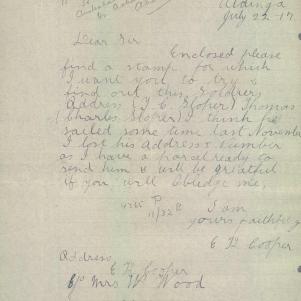 Aldinga
July 22-17
Dear Sir
Enclosed please
find a stamp for which
I want you to try &
find out this Soldiers
Address (T. C. Sloper) Thomas
Charles Sloper) I think he
sailed some time last November
I lose his Address & Number
as I have a parcel ready to
send him & will be greatful
if you will Obledge me,
I am
yours faithfully
E H Cooper
Address
E H Cooper
C/o Mrs W Wood